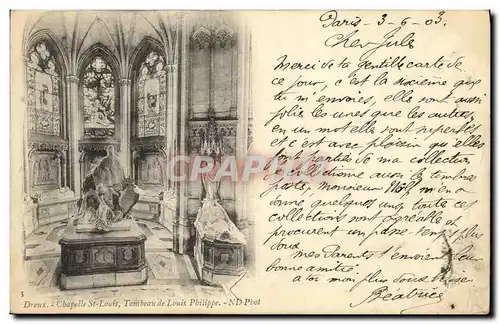 Paris - 3 - 6 - 03.
Cher Jules
Merci de ta gentille carte de
ce jour, c'est la sixième que
tu m'envoies, elles sont aussi
jolies les unes que les autres,
en un mot elles sont superbes
et c'est avec plaisir qu'elles
font parties de ma collection
je collectionne aussi les timbres
poste, Monsieur m'en a
donné quelques uns, toute ce
collections sont agréable et
procurent un passe-temps plus
doux.
mes Parents t'envoient leur
bonne amitié
a toi mon plus doux
Béatrice
CPARAMA
5 Dreux. - Chapelle St-Louis, Tombeau de Louis Philippe. - ND Phot